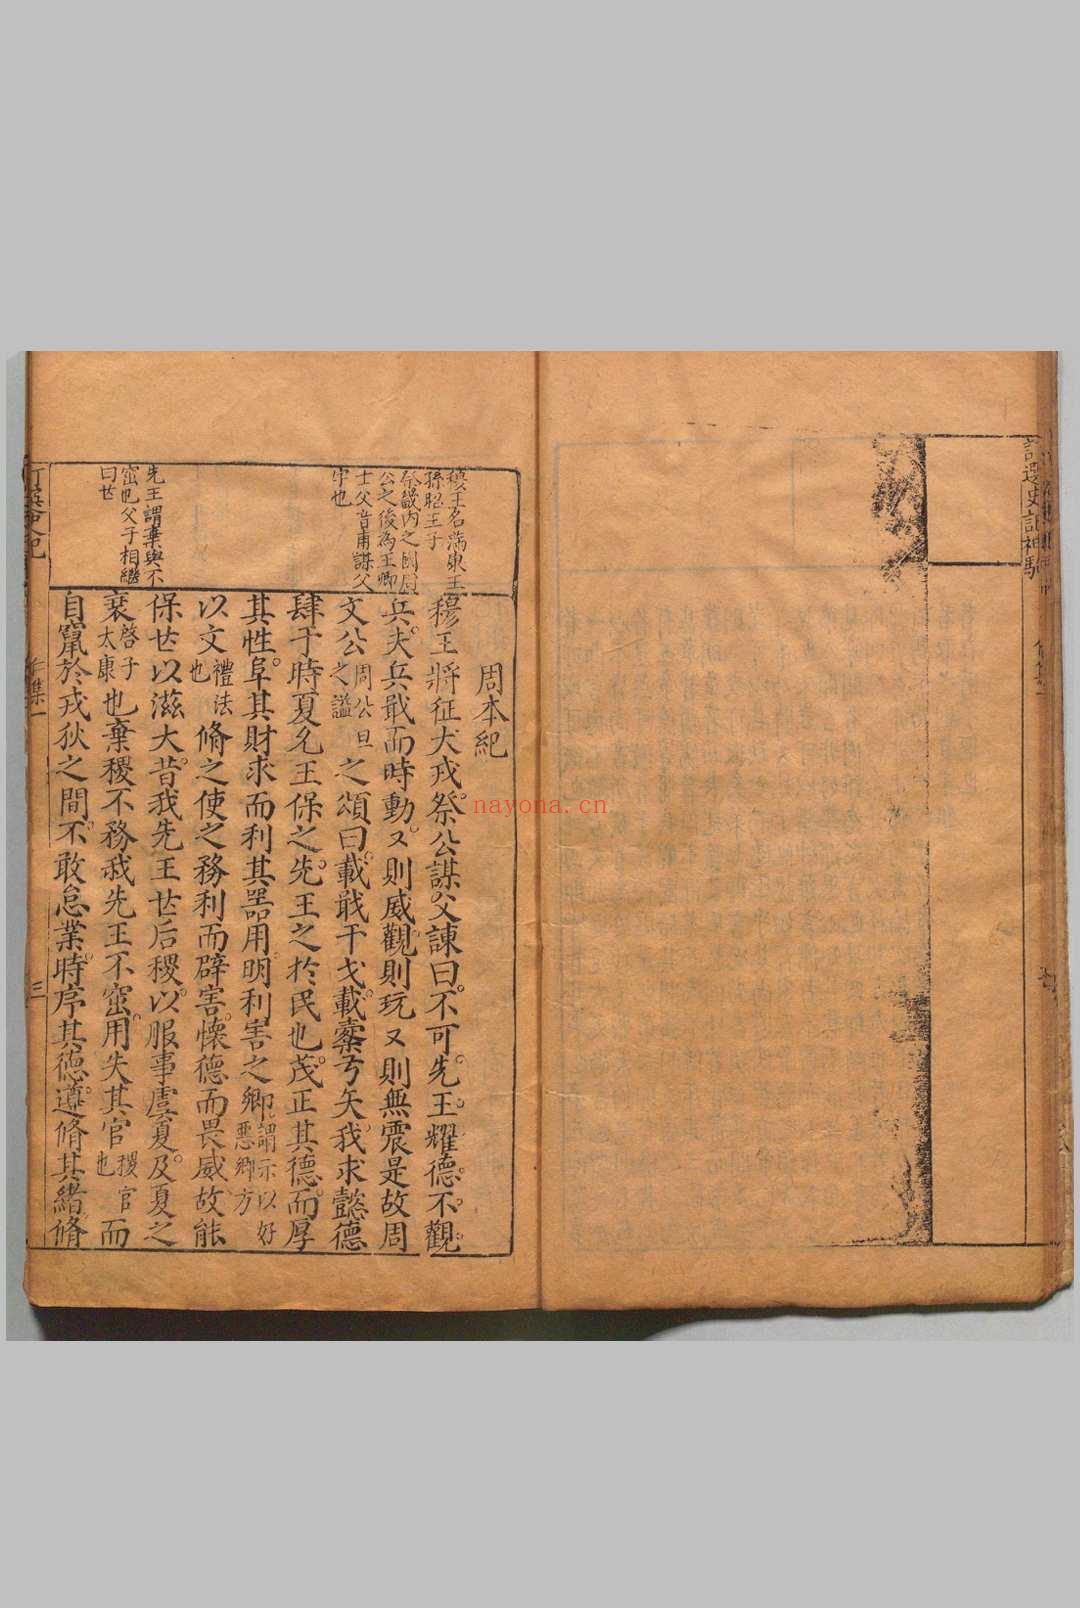 周本紀
穆王將征犬戎祭公謀父諫曰不可先王耀德不觀
兵夫兵戢而時動又則威觀則玩又則無震是故周
文公周公旦之謚之頌曰載戢干戈載櫜弓矢我求懿德
肆于時夏允王保之先王之於民也茂正其德而厚
其性阜其財求而利其器用明利害之鄉謂示以好惡鄉方
以文禮法也脩之使之務利而辟害懷德而畏威故能
保世以滋大昔我先王世后稷以服事虞夏及夏之
衰啓子太康也棄稷不務我先王不窋用失其官稷官也而
自竄於戎狄之間不敢怠業時序其德遵脩其緒脩
穆王名滿康王
孫昭王子
祭畿内之國周
公之後為王卿
士父音甫謀父
字也
先王謂棄與不
窋也父子相繼
曰世
集一
三
nayona.cn
選史記神駒